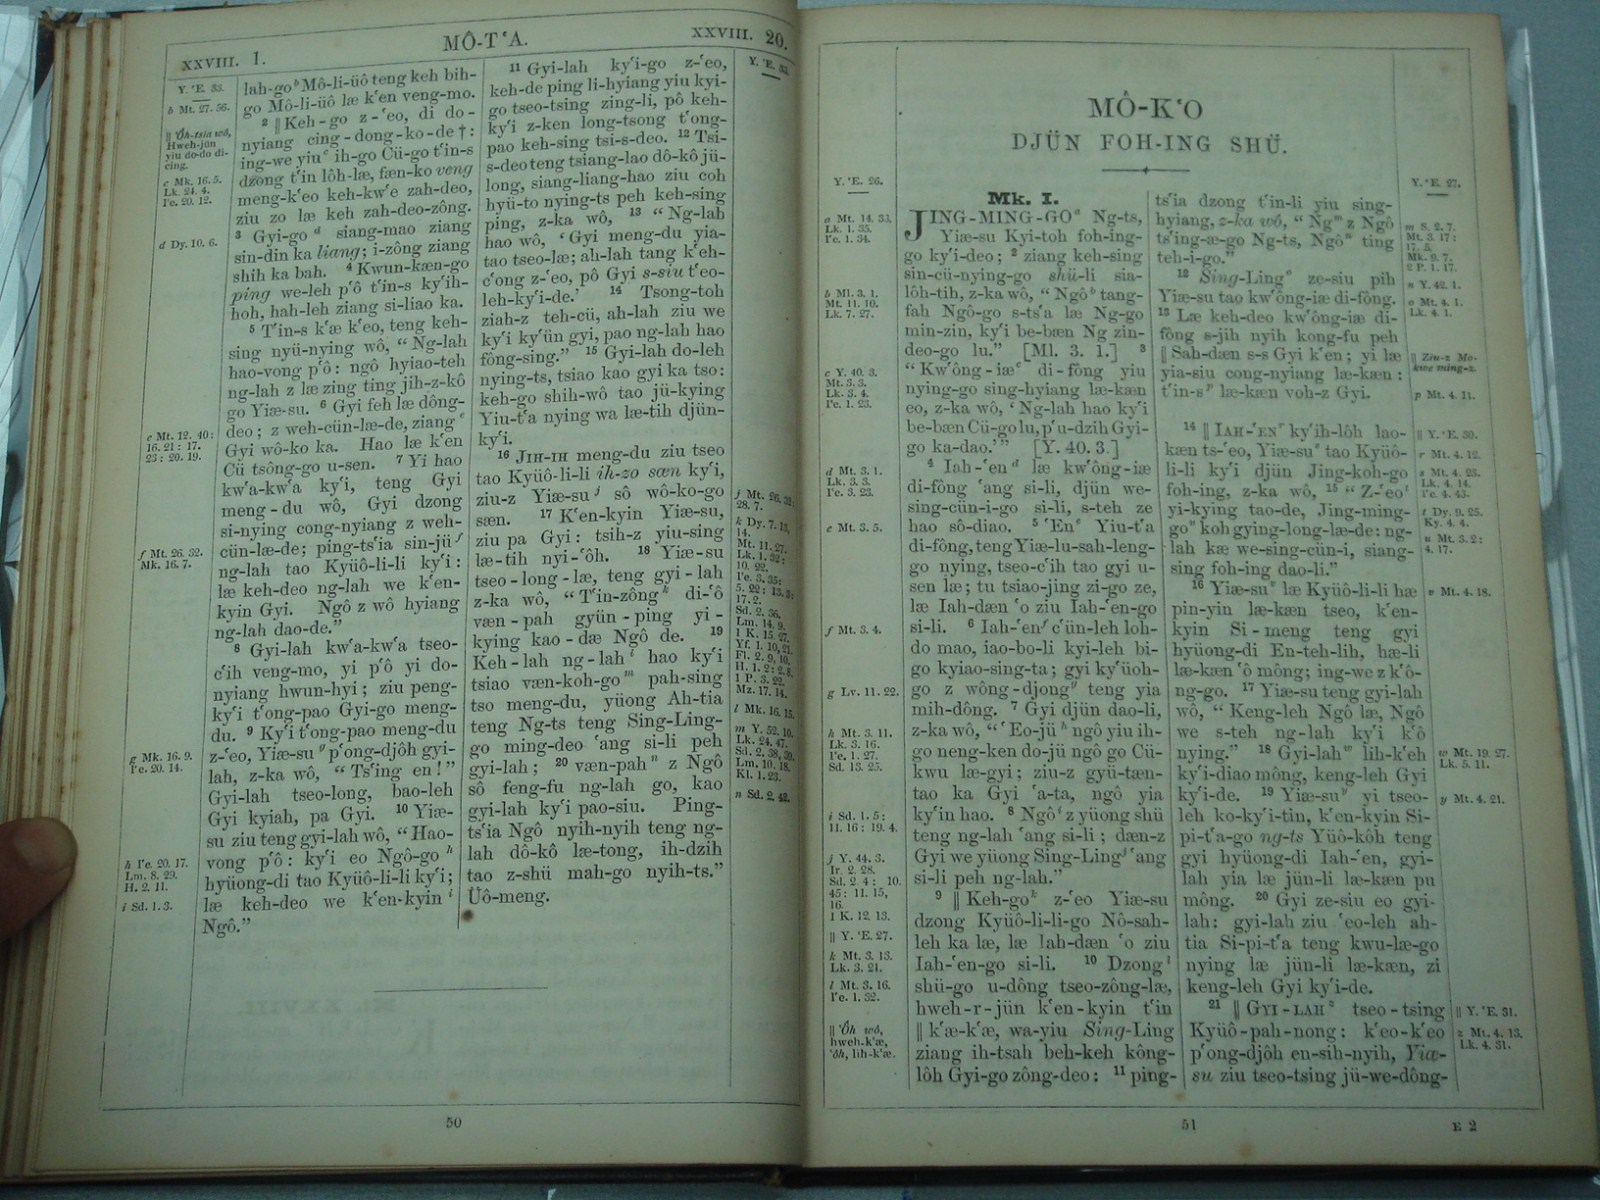 XXVIII. 1.
MÔ-TʻA.
XXVIII. 20.
Y. ʻE. 33.
b Mt. 27. 56.
|| Ôh-tsia wô,
Hweh-jün
yiu do-do di-
cing.
c Mk. 16. 5.
Lk. 24. 4.
Iʻe. 20. 12.
d Dy. 10. 6.
e Mt. 12. 40:
16. 21: 17.
23: 20. 19.
f Mt. 26. 32.
Mk. 16. 7.
g Mk. 16. 9.
Iʻe. 20. 14.
h Iʻe. 20. 17.
Lm. 8. 29.
H. 2. 11.
i Sd. 1. 3.
lah-go b Mô-li-üô teng keh bih-
go Mô-li-üô læ kʻen veng-mo.
2 || Keh-go z-ʻeo, di do-
nyiang cing-dong-ko-de †:
ing-we yiu c ih-go Cü-go tʻin-s
dzong tʻin lôh-læ, fæn-ko veng
meng-kʻeo keh-kwʻe zah-deo,
ziu zo læ keh zah-deo-zông.
3 Gyi-go d siang-mao ziang
sin-din ka liang; i-zông ziang
shih ka bah. 4 Kwun-kæn-go
ping we-leh pʻô tʻin-s kyʻih-
hoh, hah-leh ziang si-liao ka.
5 Tʻin-s kʻæ kʻeo, teng keh-
sing nyü-nying wô, “Ng-lah
hao-vong pʻô: ngô hyiao-teh
ng-lah z læ zing ting jih-z-kô
go Yiæ-su. 6 Gyi feh læ dông-
deo; z weh-cün-læ-de, ziang e
Gyi wô-ko ka. Hao læ kʻen
Cü tsông-go u-sen. 7 Yi hao
kwʻa-kwʻa kyʻi, teng Gyi
meng-du wô, Gyi dzong
si-nying cong-nyiang z weh-
cün-læ-de; ping-tsʻia sin-jü f
ng-lah tao Kyüô-li-li kyʻi:
læ keh-deo ng-lah we kʻen-
kyin Gyi. Ngô z wô hyiang
ng-lah dao-de.”
8 Gyi-lah kwʻa-kwʻa tseo-
cʻih veng-mo, yi pʻô yi do-
nyiang hwun-hyi; ziu peng-
kyʻi tʻong-pao Gyi-go meng-
du. 9 Kyʻi tʻong-pao meng-du
z-ʻeo, Yiæ-su g pʻong-djôh gyi-
lah, z-ka wô, “Tsʻing en!”
Gyi-lah tseo-long, bao-leh
Gyi kyiah, pa Gyi. 10 Yiæ-
su ziu teng gyi-lah wô, “Hao-
vong pʻô: kyʻi eo Ngô-go h
hyüong-di tao Kyüô-li-li kyʻi;
læ keh-deo we kʻen-kyin i
Ngô.”
11 Gyi-lah kyʻi-go z-ʻeo,
keh-de ping li-hyiang yiu kyi-
go tseo-tsing zing-li, pô keh-
kyʻi z-ken long-tsong tʻong-
pao keh-sing tsi-s-deo. 12 Tsi-
s-deo teng tsiang-lao dô-kô jü-
long, siang-liang-hao ziu coh
hyü-to nying-ts peh keh-sing
ping, z-ka wô, 13 “Ng-lah
hao wô, ‘Gyi meng-du yia-
tao tseo-læ; ah-lah tang kʻeh-
cʻong z-ʻeo, pô Gyi s-siu tʻeo-
leh-kyʻi-de.’ 14 Tsong-toh
ziah-z teh-cü, ah-lah ziu we
kyʻi kyʻün gyi, pao ng-lah hao
fông-sing.” 15 Gyi-lah do-leh
nying-ts, tsiao kao gyi ka tso:
keh-go shih-wô tao jü-kying
Yiu-tʻa nying wa læ-tih djün-
kyʻi.
16 JIH-IH meng-du ziu tseo
tao Kyüô-li-li ih-zo sæn kyʻi,
ziu-z Yiæ-su j sô wô-ko-go
sæn. 17 Kʻen-kyin Yiæ-su,
ziu pa Gyi: tsih-z yiu-sing
læ-tih nyi-ʻôh. 18 Yiæ-su
tseo-long-læ, teng gyi-lah
z-ka wô, “Tʻin-zông k di-ʻô
væn-pah gyün-ping yi-
kying kao-dæ Ngô de. 19
Keh-lah ng-lah l hao kyʻi
tsiao væn-koh-go m pah-sing
tso meng-du, yüong Ah-tia
teng Ng-ts teng Sing-Ling-
go ming-deo ʻang si-li peh
gyi-lah; 20 væn-pah n z Ngô
sô feng-fu ng-lah go, kao
gyi-lah kyʻi pao-siu. Ping-
tsʻia Ngô nyih-nyih teng ng-
lah dô-kô læ-tong, ih-dzih
tao z-shü mah-go nyih-ts.”
Üô-meng.
j Mt. 26. 32:
28. 7.
k Dy. 7. 13,
14.
Mt. 11. 27.
Lk. 1. 32:
10. 22.
Iʻe. 3. 35:
5. 22: 13. 3:
17. 2.
Sd. 2. 36.
Lm. 14. 9.
1 K. 15. 27.
Yf. 1. 10, 21.
Fl. 2. 9, 10.
H. 1. 2: 2. 8.
1 P. 3. 22.
Mz. 17. 14.
l Mk. 16. 15.
m Y. 52. 10.
Lk. 24. 47.
Sd. 2. 38, 39.
Lm. 10. 18.
Kl. 1. 23.
n Sd. 2. 42.
50
MÔ-KʻO
DJÜN FOH-ING SHÜ.
Y. ʻE. 26.
a Mt. 14. 33.
Lk. 1. 35.
Iʻe. 1. 34.
b Ml. 3. 1.
Mt. 11. 10.
Lk. 7. 27.
c Y. 40. 3.
Mt. 3. 3.
Lk. 3. 4.
Iʻe. 1. 23.
d Mt. 3. 1.
Lk. 3. 3.
Iʻe. 3. 23.
e Mt. 3. 5.
f Mt. 3. 4.
g Lv. 11. 22.
h Mt. 3. 11.
Lk. 3. 16.
Iʻe. 1. 27.
Sd. 13. 25.
i Sd. 1. 5:
11. 16: 19. 4.
j Y. 44. 3.
Ir. 2. 28.
Sd. 2. 4: 10.
45: 11. 15,
16.
1 K. 12. 13.
|| Y. ʻE. 27.
k Mt. 3. 13.
Lk. 3. 21.
l Mt. 3. 16.
Iʻe. 1. 32.
|| ʻÔh wô,
hweh-kʻæ,
ʻôh, lih-kʻæ.
Mk. I.
JING-MING-GO a Ng-ts,
Yiæ-su Kyi-toh foh-ing-
go kyʻi-deo; 2 ziang keh-sing
sin-cü-nying-go shü-li sia-
lôh-tih, z-ka wô, “Ngô b tang-
fah Ngô-go s-tsʻa læ Ng-go
min-zin, kyʻi be-bæn Ng zin-
deo-go lu.” [Ml. 3. 1.] 3
“Kwʻông-iæ c di-fông yiu
nying-go sing-hyiang læ-kæn
eo, z-ka wô, ‘Ng-lah hao kyʻi
be-bæn Cü-go lu, pʻu-dzih Gyi-
go ka-dao.’” [Y. 40. 3.]
4 Iah-ʻen d læ kwʻông-iæ
di-fông ʻang si-li, djün we-
sing-cün-i-go si-li, s-teh ze
hao sô-diao. 5 ʻEn e Yiu-tʻa
di-fông, teng Yiæ-lu-sah-leng-
go nying, tseo-cʻih tao gyi u-
sen læ; tu tsiao-jing zi-go ze,
læ Iah-dæn ʻo ziu Iah-ʻen-go
si-li. 6 Iah-ʻen f cʻün-leh loh-
do mao, iao-bo-li kyi-leh bi-
go kyiao-sing-ta; gyi kyʻüoh-
go z wông-djong g teng yia
mih-dông. 7 Gyi djün dao-li,
z-ka wô, “ʻEo-jü h ngô yiu ih-
go neng-ken do-jü ngô go Cü-
kwu læ-gyi; ziu-z gyü-tæn-
tao ka Gyi ʻa-ta, ngô yia
kyʻin hao. 8 Ngô i z yüong shü
teng ng-lah ʻang si-li; dæn-z
Gyi we yüong Sing-Ling j ʻang
si-li peh ng-lah.”
9 || Keh-go k z-ʻeo Yiæ-su
dzong Kyüô-li-li-go Nô-sah-
leh ka læ, læ Iah-dæn ʻo ziu
Iah-ʻen-go si-li. 10 Dzong l
shü-go u-dông tseo-zông-læ,
hweh-r-jün kʻen-kyin tʻin
|| kʻæ-kʻæ, wa-yiu Sing-Ling
ziang ih-tsah beh-keh kông-
lôh Gyi-go zông-deo: 11 ping-
tsʻia dzong tʻin-li yiu sing-
hyiang, z-ka wô, “Ng m z Ngô
tsʻing-æ-go Ng-ts, Ngô n ting
teh-i-go.”
12 Sing-Ling o ze-siu pih
Yiæ-su tao kwʻông-iæ di-fông.
13 Læ keh-deo kwʻông-iæ di-
fông s-jih nyih kong-fu peh
|| Sah-dæn s-s Gyi kʻen; yi læ
yia-siu cong-nyiang læ-kæn:
tʻin-s p læ-kæn voh-z Gyi.
14 || IAH-ʻEN r kyʻih-lôh lao-
kæn ts-ʻeo, Yiæ-su s tao Kyüô-
li-li kyʻi djün Jing-koh-go
foh-ing, z-ka wô, 15 “Z-ʻeo t
yi-kying tao-de, Jing-ming-
go u koh gying-long-læ-de: ng-
lah kæ we-sing-cün-i, siang-
sing foh-ing dao-li.”
16 Yiæ-su v læ Kyüô-li-li hæ
pin-yin læ-kæn tseo, kʻen-
kyin Si-meng teng gyi
hyüong-di En-teh-lih, hæ-li
læ-kæn ʻô mông; ing-we z kʻô-
ng-go. 17 Yiæ-su teng gyi-lah
wô, “Keng-leh Ngô læ, Ngô
we s-teh ng-lah kyʻi kʻô
nying.” 18 Gyi-lah w lih-kʻeh
kyʻi-diao mông, keng-leh Gyi
kyʻi-de. 19 Yiæ-su y yi tseo-
leh ko-kyʻi-tin, kʻen-kyin Si-
pi-tʻa-go ng-ts Yüô-kôh teng
gyi hyüong-di Iah-ʻen, gyi-
lah yia læ jün-li læ-kæn pu
mông. 20 Gyi ze-siu eo gyi-
lah: gyi-lah ziu ʻeo-leh ah-
tia Si-pi-tʻa teng kwu-læ-go
nying læ jün-li læ-kæn, zi
keng-leh Gyi kyʻi-de.
21 || GYI-LAH z tseo-tsing
Kyüô-pah-nong: kʻeo-kʻeo
pʻong-djôh en-sih-nyih, Yiæ-
su ziu tseo-tsing jü-we-dông-
Y. ʻE. 27.
m S. 2. 7.
Mt. 3. 17:
17. 5.
Mk. 9. 7.
2 P. 1. 17.
n Y. 42. 1.
o Mt. 4. 1.
Lk. 4. 1.
|| Ziu-z Mo-
kwe ming-z.
p Mt. 4. 11.
|| Y. ʻE. 30.
r Mt. 4. 12.
s Mt. 4. 23.
Lk. 4. 14.
Iʻe. 4. 43.
t Dy. 9. 25.
Ky. 4. 4.
u Mt. 3. 2:
4. 17.
v Mt. 4. 18.
w Mt. 19. 27.
Lk. 5. 11.
y Mt. 4. 21.
|| Y. ʻE. 31.
z Mt. 4. 13.
Lk. 4. 31.
51
E 2